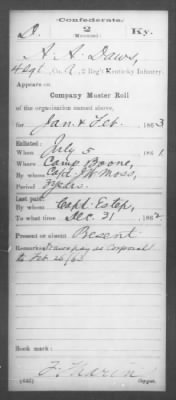 Confederate.
D. 2 Ky.
A. A. Daws,
4 Sgt, Co. A, 2 Reg't Kentucky Infantry.
Appears on
Company Muster Roll
of the organization named above,
for Jan & Feb 1863
Enlisted:
When July 5 1861.
Where Camp Boone,
By whom Capt J W Moss,
Period 3 years.
Last paid:
By whom Capt. Estep,
To what time Dec. 31 1862
Present or absent Present
Remarks: Draws pay as Corporal
to Feb 26/63
Book mark:
(642) Copyist.